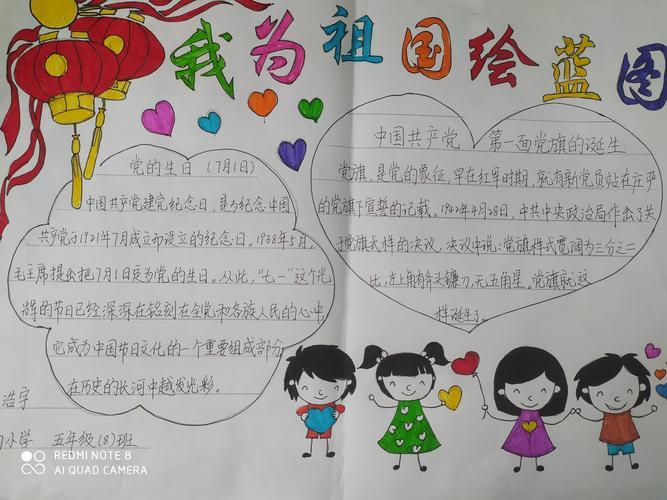 我为祖国绘蓝图
党的生日（7月1日）
中国共产党建党纪念日，是为纪念中国
共产党于1921年7月成立却设立的纪念日。1938年5月，
毛主席提出把7月1日定为党的生日。从此，“七一”这个光
辉的节日已经深深在铭刻在全党和各族人民的心中，
它成为中国节日文化的一个重要组成部分
在历史的长河中越发光彩。
中国共产党 第一面党旗的诞生
党旗，是党的象征，早在红军时期，就有新党员站在庄严
的党旗下宣誓的记载。1942年4月28日，中共中央政治局作出了关
于党旗式样的决议，决议中说：党旗样式宽阔为三分之二
比，左上角有斧头镰刀，无五角星。党旗就这
样诞生了。
浩宇
小学 五年级(8)班
REDMI NOTE 8
AI QUAD CAMERA